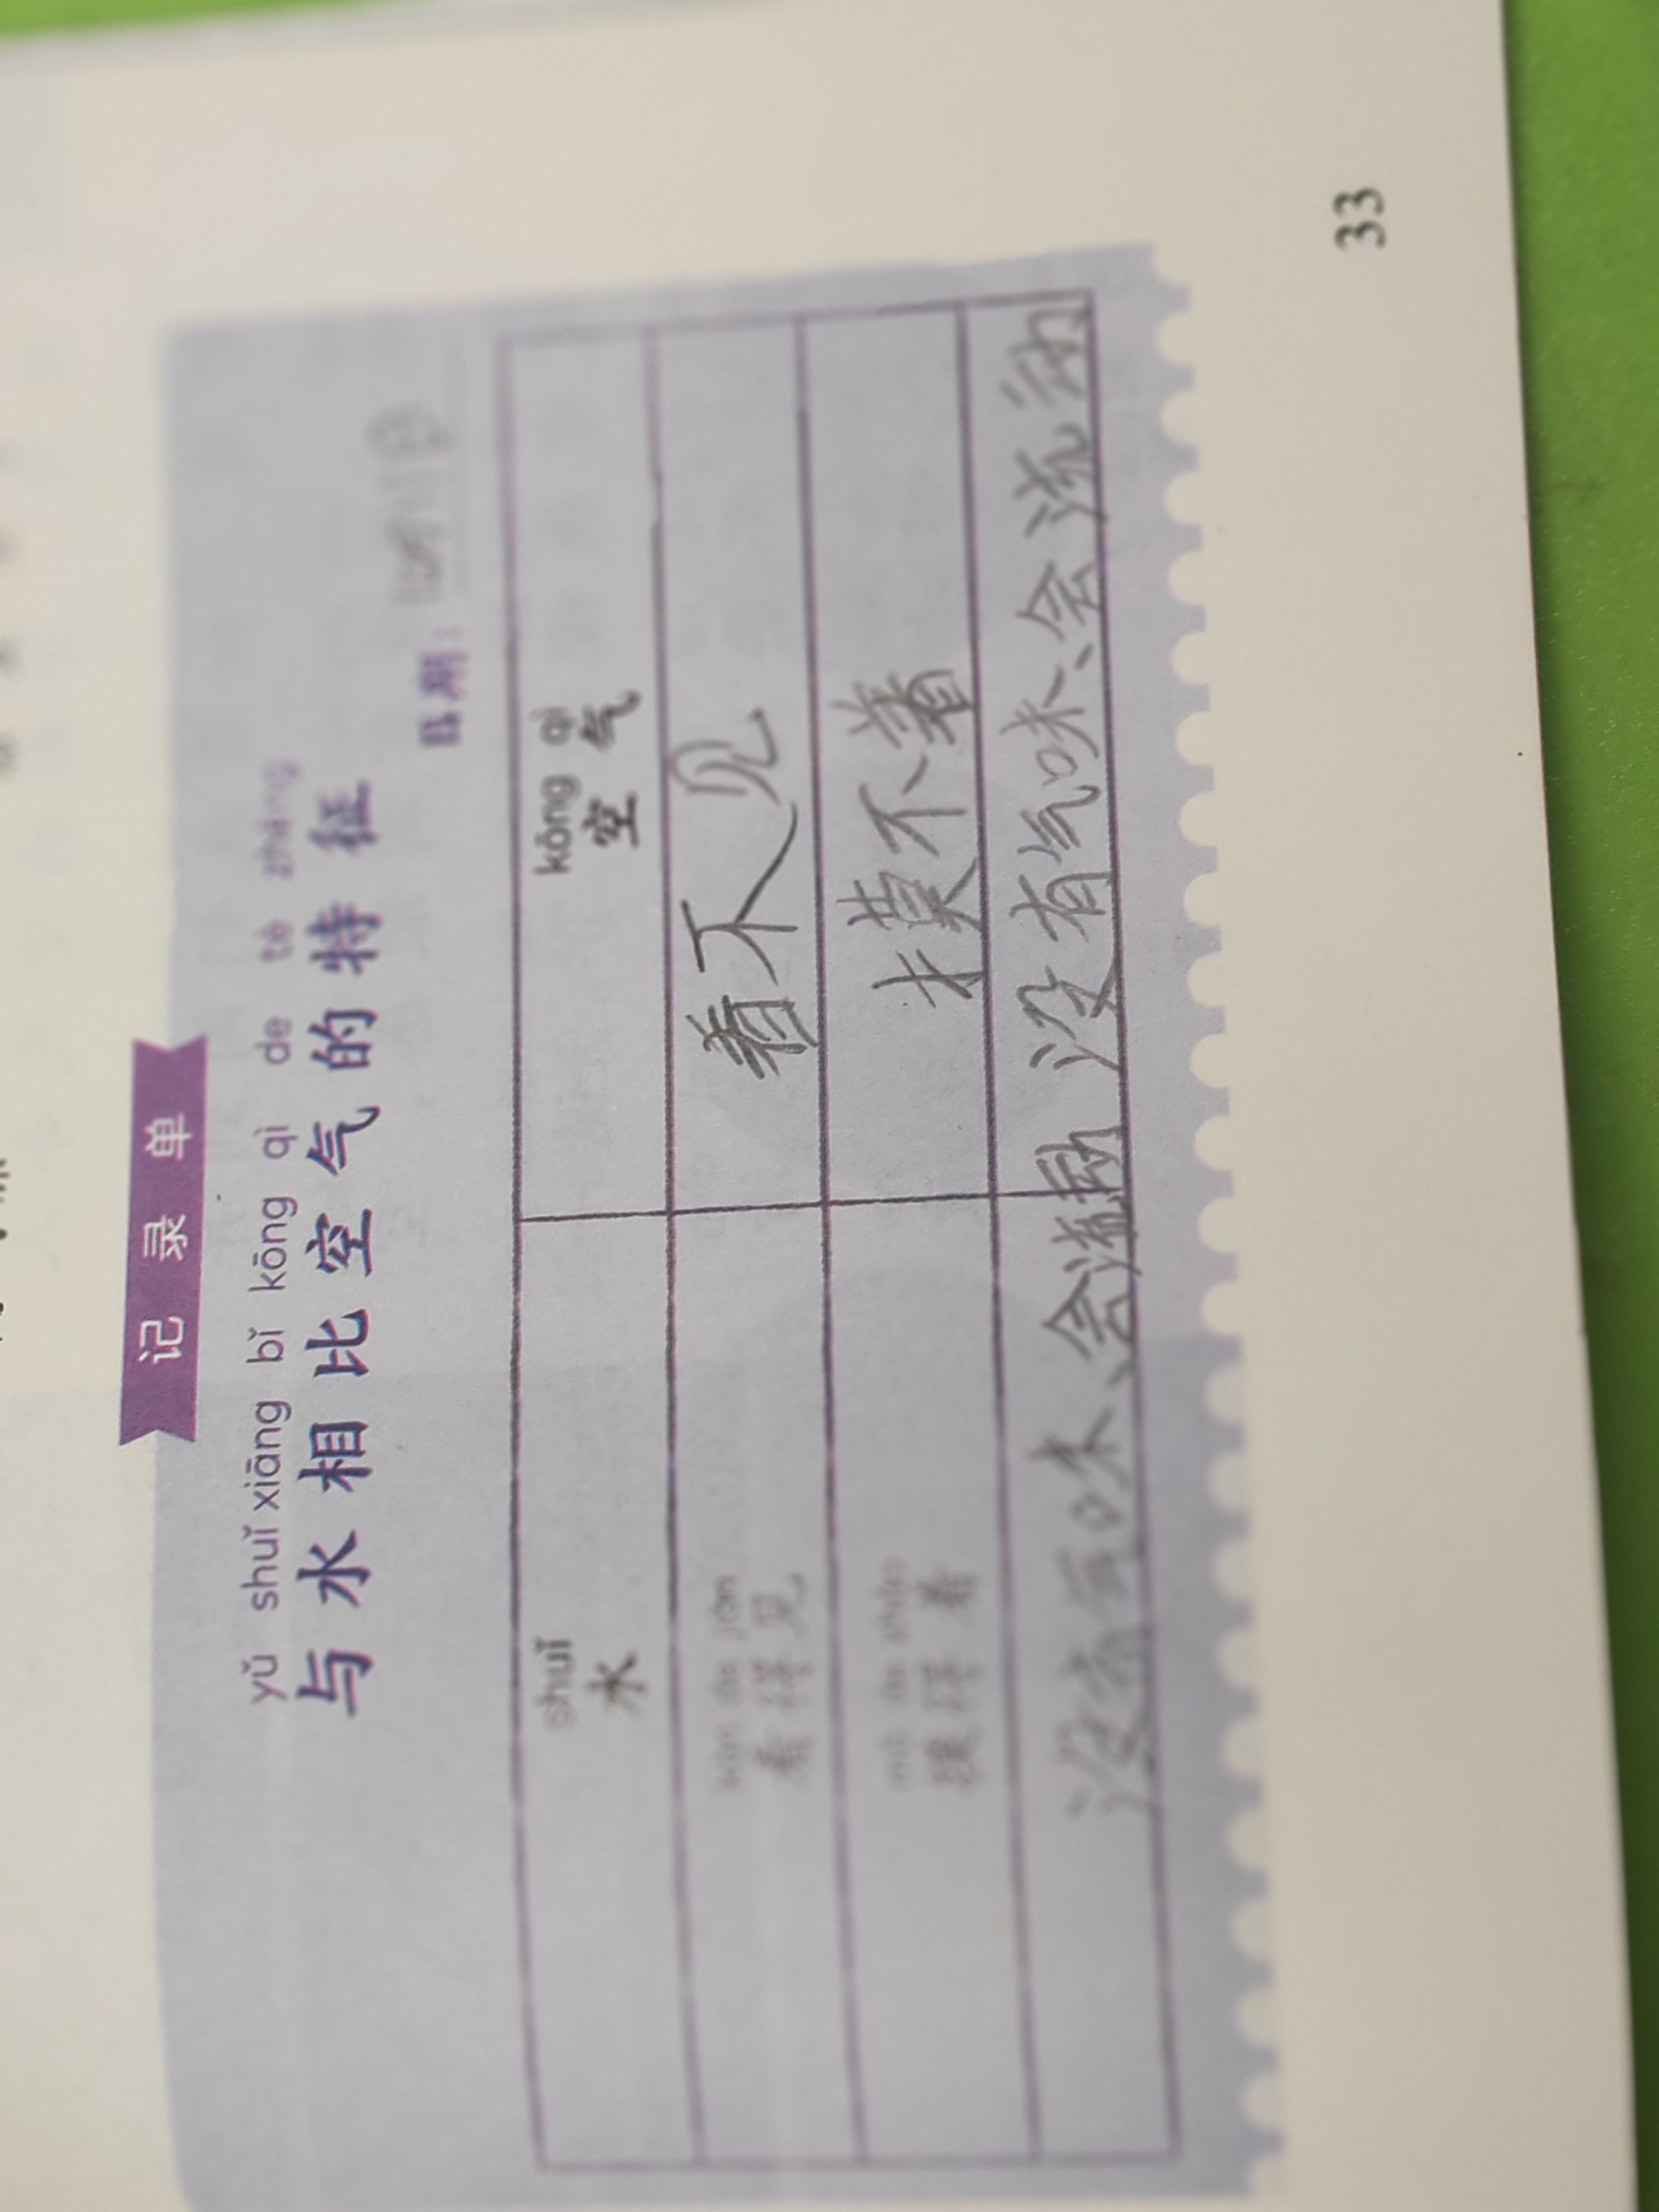 记录单
yǔ shuǐ xiāng bǐ kōng qì de tè zhēng
与水相比空气的特征
日期:
shuǐ kōng qì
水 空气
kàn de jiàn
看得见 看不见
mō de zháo
摸得着 摸不着
没有气味、会流动 没有气味、会流动
33